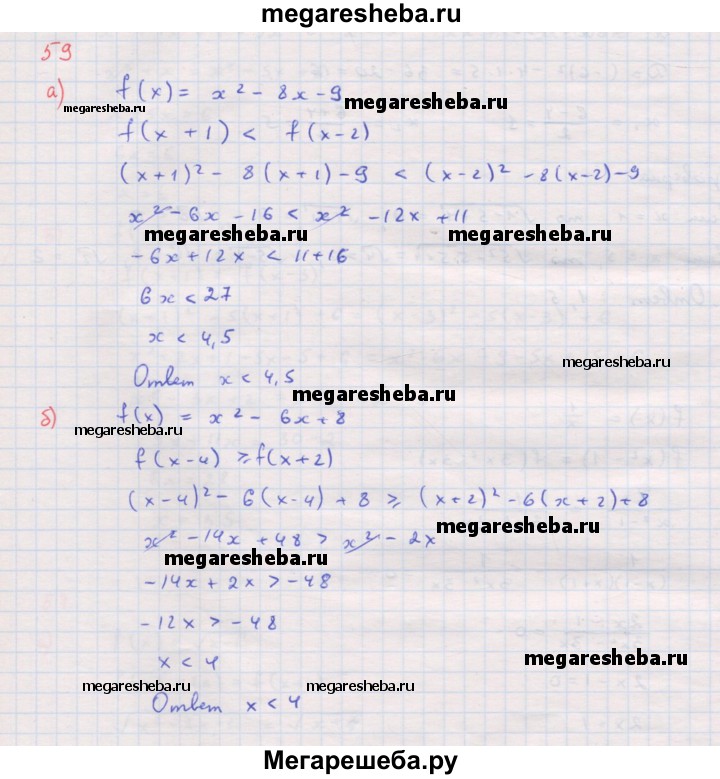 megaresheba.ru
59
а) f(x) = x² - 8x - 9 megaresheba.ru
megaresheba.ru
f(x + 1) < f(x-2)
(x+1)² - 8(x+1) - 9 < (x-2)² - 8(x-2) - 9
x² - 6x - 16 < x² - 12x + 11
megaresheba.ru megaresheba.ru
- 6x + 12x < 11 + 16
6x < 27
x < 4,5
megaresheba.ru
Ответ x < 4,5
megaresheba.ru
б) f(x) = x² - 6x + 8
megaresheba.ru
f(x-4) ≥ f(x+2)
(x-4)² - 6(x-4) + 8 ≥ (x+2)² - 6(x+2) + 8
megaresheba.ru
x² - 14x + 48 > x² - 2x
megaresheba.ru
- 14x + 2x > - 48
- 12x > - 48
x < 4
megaresheba.ru
megaresheba.ru megaresheba.ru
Ответ x < 4
Мегарешеба.ру